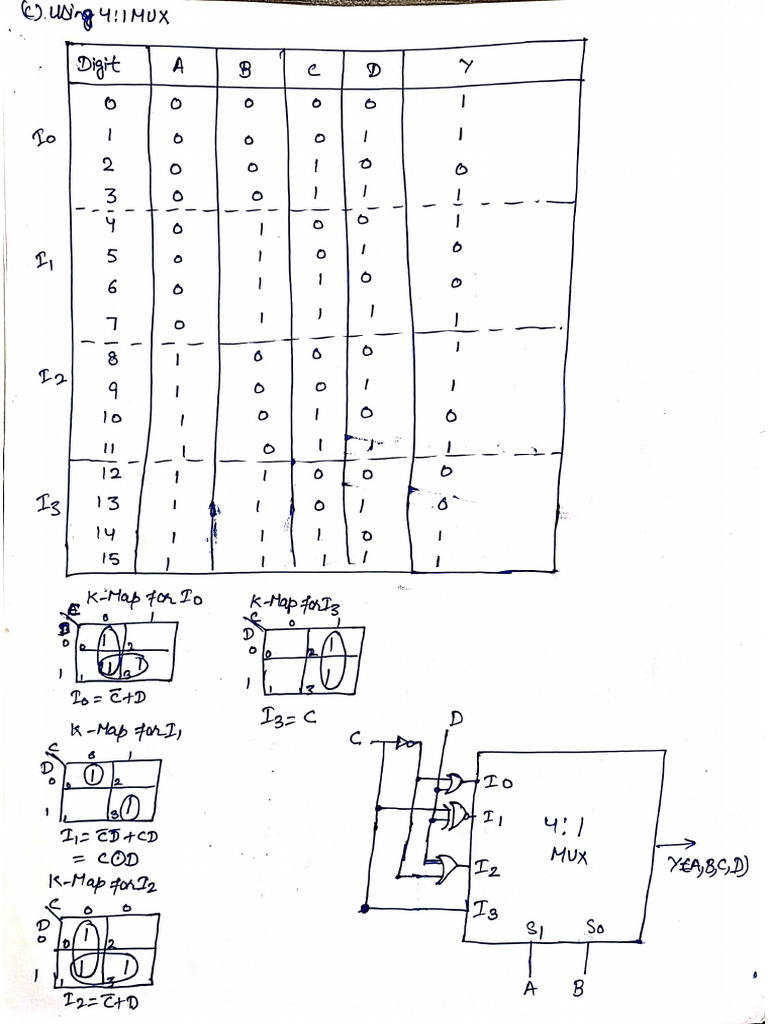 (C). Using 4:1 MUX
Digit A B C D Y
I0
0 0 0 0 0 1
1 0 0 0 1 1
2 0 0 1 0 0
3 0 0 1 1 1
I1
4 0 1 0 0 1
5 0 1 0 1 0
6 0 1 1 0 0
7 0 1 1 1 1
I2
8 1 0 0 0 1
9 1 0 0 1 1
10 1 0 1 0 0
11 1 0 1 1 1
I3
12 1 1 0 0 0
13 1 1 0 1 0
14 1 1 1 0 1
15 1 1 1 1 1
K-Map for I0
C
0 1
D
0 0 1 2
1 1 1 3 1
I0 = C̅+D
K-Map for I3
C
0 1
D
0 0 2 1
1 1 3 1
I3 = C
K-Map for I1
C
0 1
D
0 0 1 2
1 1 3 1
I1 = C̅D̅ + CD
= C⊙D
K-Map for I2
C
0 0
D
0 0 1 2
1 1 1 3 1
I2 = C̅+D
D
C
I0
I1
I2
I3
4:1
MUX
Y(A,B,C,D)
S1 S0
A B